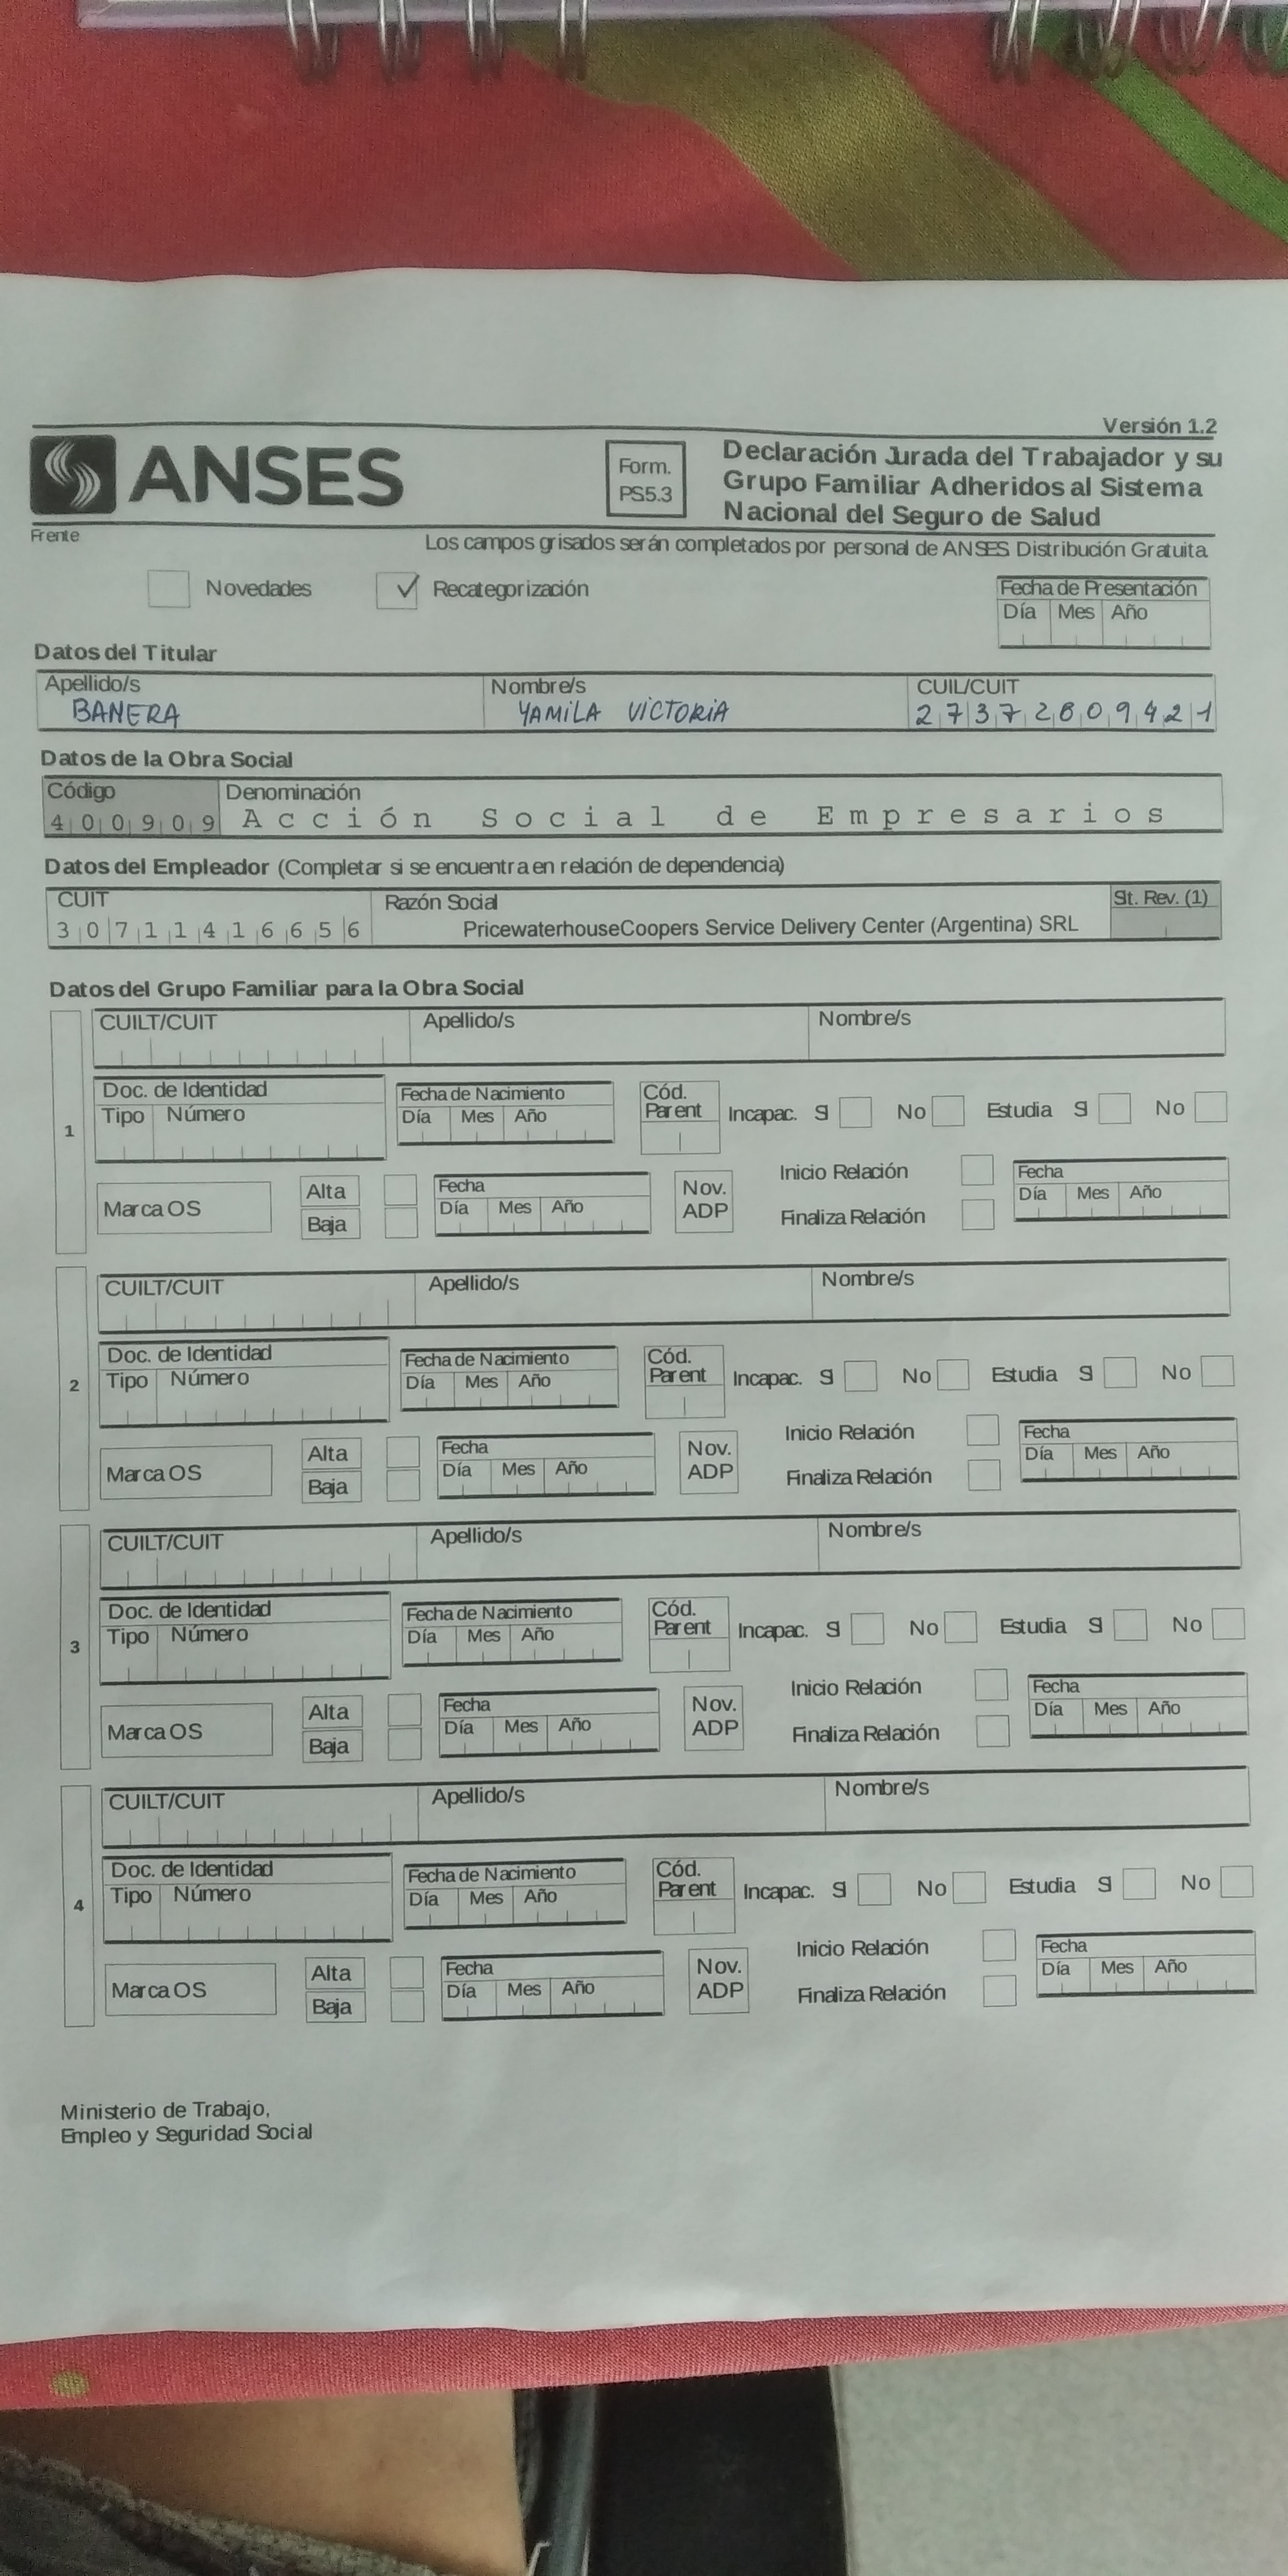 Versión 1.2
ANSES
Form.
PS5.3
Declaración Jurada del Trabajador y su
Grupo Familiar Adheridos al Sistema
Nacional del Seguro de Salud
Frente
Los campos grisados serán completados por personal de ANSES Distribución Gratuita
Novedades ✓ Recategorización
Fecha de Presentación
Día Mes Año
Datos del Titular
Apellido/s Nombre/s CUIL/CUIT
BANERA YAMILA VICTORIA 27372809421
Datos de la Obra Social
Código Denominación
400909 Acción Social de Empresarios
Datos del Empleador (Completar si se encuentra en relación de dependencia)
CUIT Razón Social St. Rev. (1)
30711416656 PricewaterhouseCoopers Service Delivery Center (Argentina) SRL
Datos del Grupo Familiar para la Obra Social
1
CUILT/CUIT Apellido/s Nombre/s
Doc. de Identidad Fecha de Nacimiento Cód. Parent Incapac. SI No Estudia SI No
Tipo Número Día Mes Año
Marca OS Alta Baja Fecha Día Mes Año Nov. ADP Inicio Relación Finaliza Relación Fecha Día Mes Año
2
CUILT/CUIT Apellido/s Nombre/s
Doc. de Identidad Fecha de Nacimiento Cód. Parent Incapac. SI No Estudia SI No
Tipo Número Día Mes Año
Marca OS Alta Baja Fecha Día Mes Año Nov. ADP Inicio Relación Finaliza Relación Fecha Día Mes Año
3
CUILT/CUIT Apellido/s Nombre/s
Doc. de Identidad Fecha de Nacimiento Cód. Parent Incapac. SI No Estudia SI No
Tipo Número Día Mes Año
Marca OS Alta Baja Fecha Día Mes Año Nov. ADP Inicio Relación Finaliza Relación Fecha Día Mes Año
4
CUILT/CUIT Apellido/s Nombre/s
Doc. de Identidad Fecha de Nacimiento Cód. Parent Incapac. SI No Estudia SI No
Tipo Número Día Mes Año
Marca OS Alta Baja Fecha Día Mes Año Nov. ADP Inicio Relación Finaliza Relación Fecha Día Mes Año
Ministerio de Trabajo,
Empleo y Seguridad Social